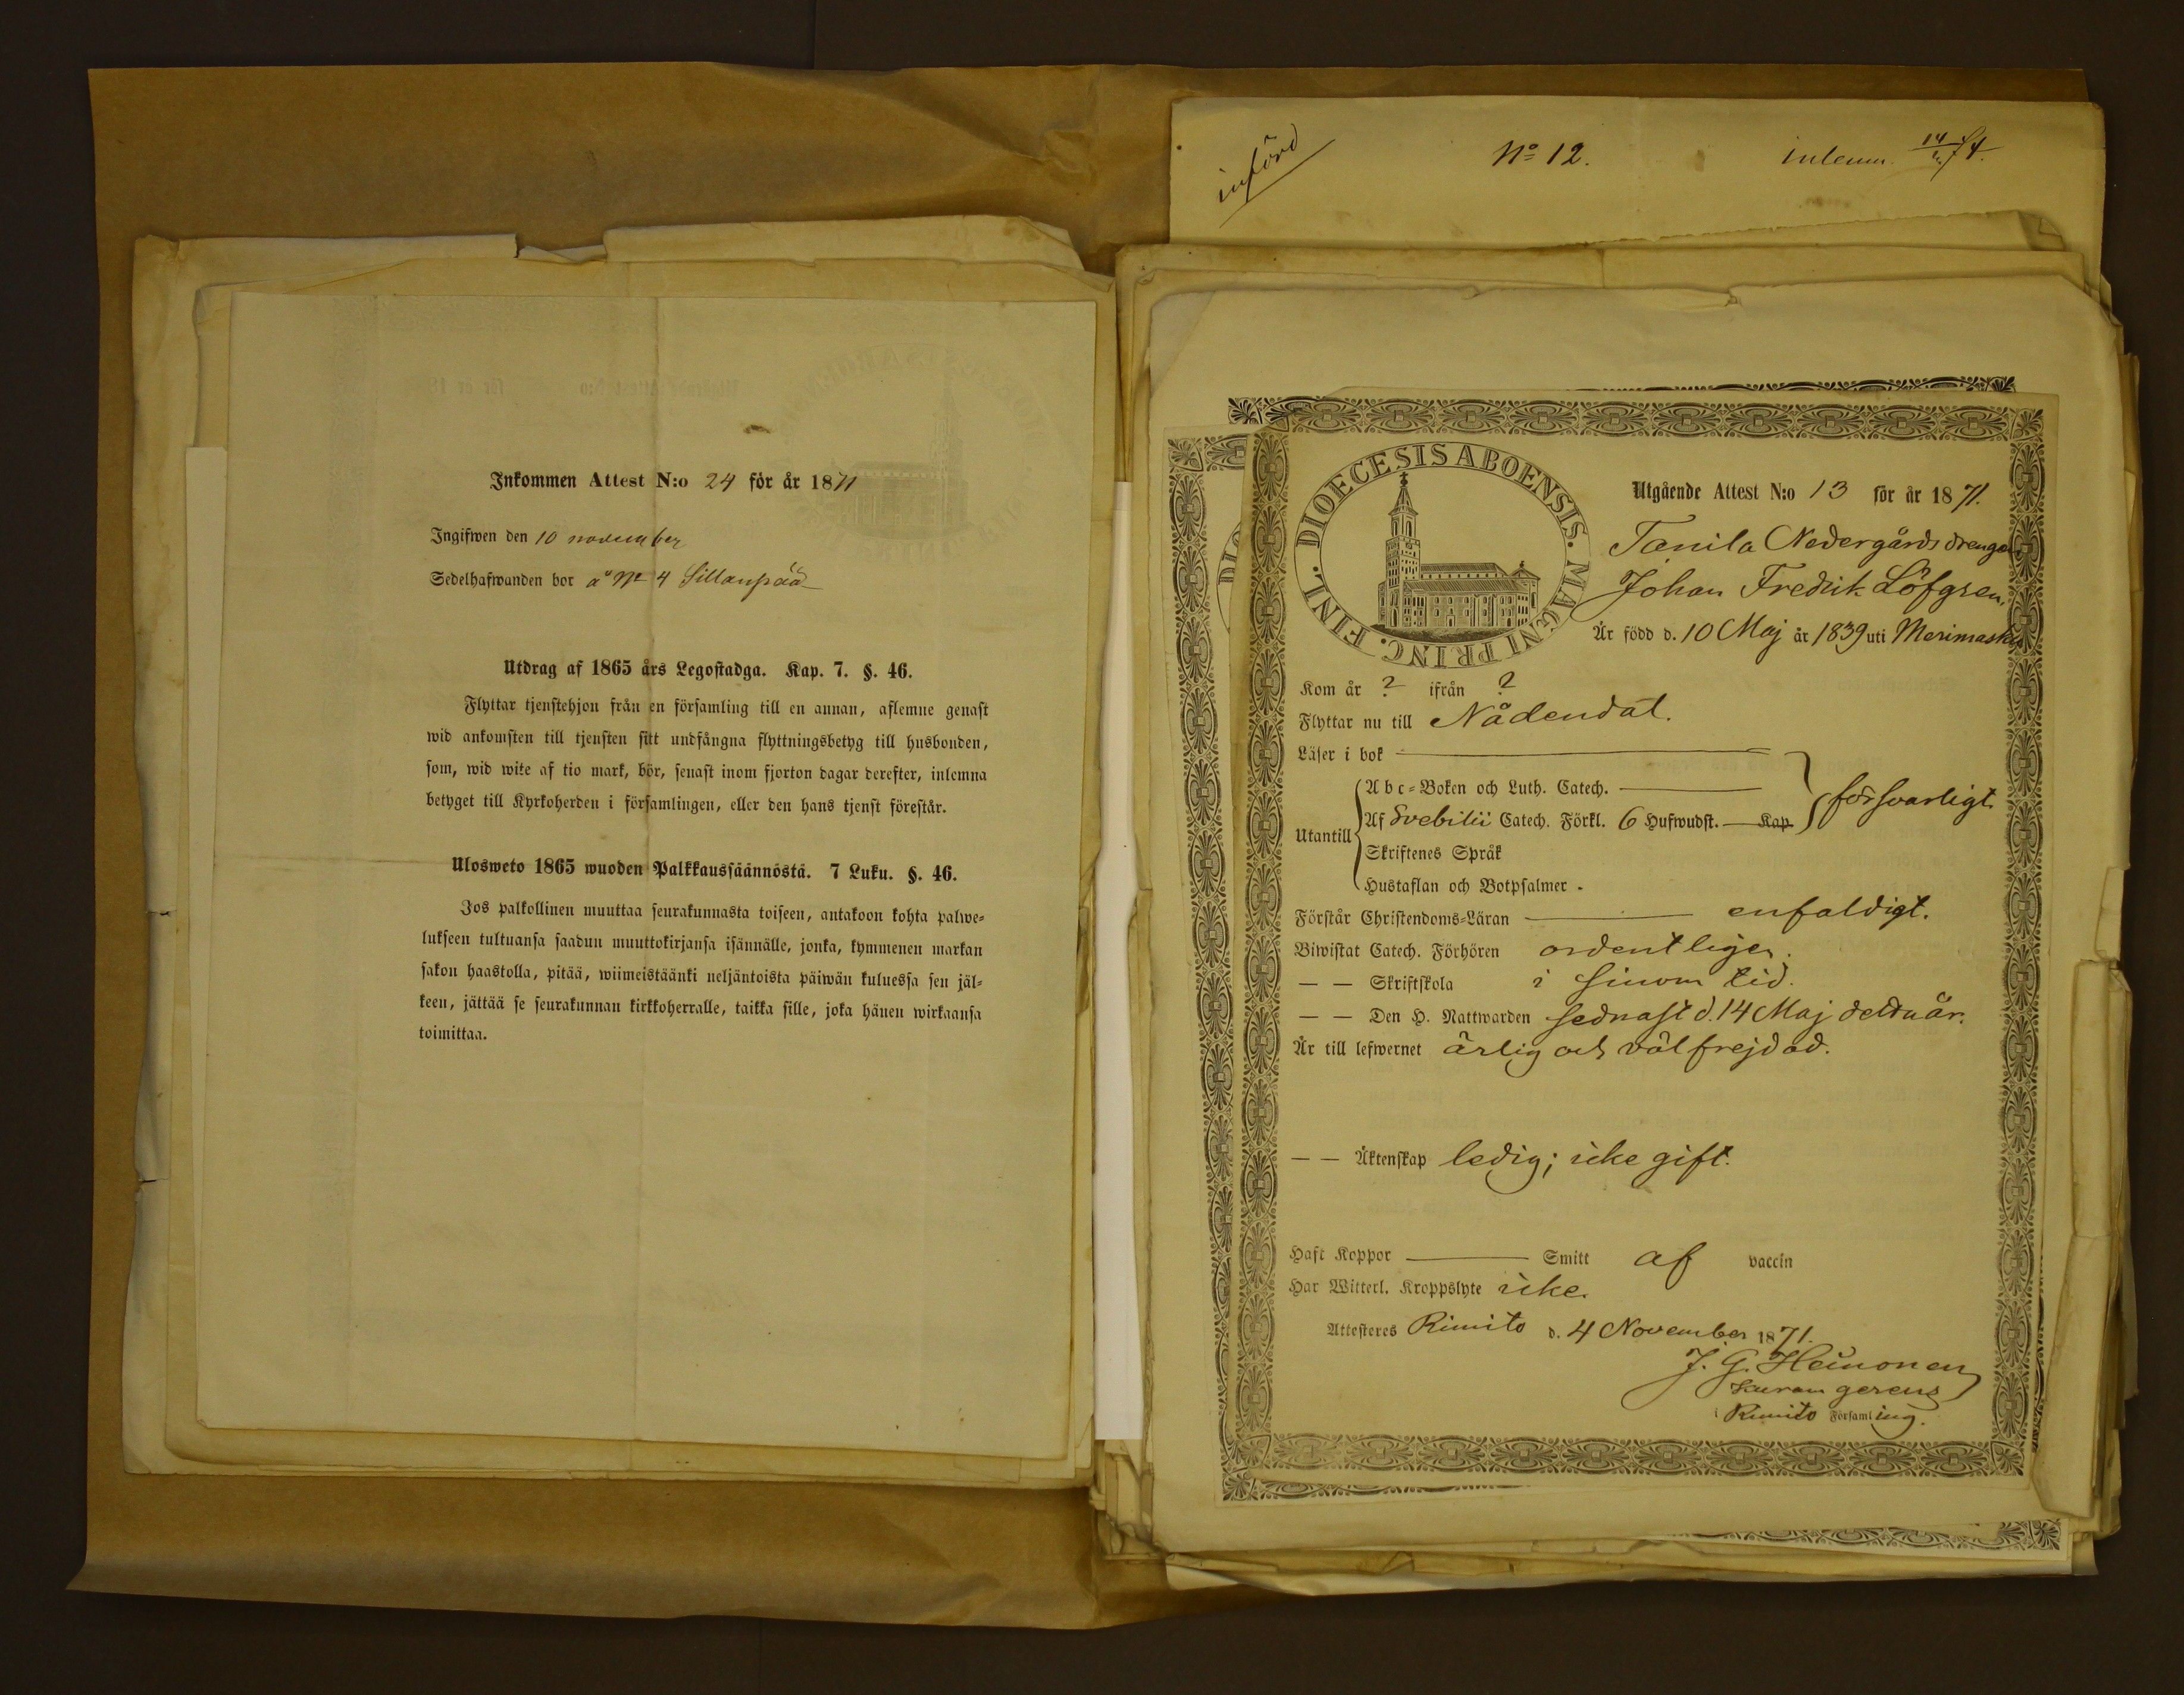 Inkommen Attest N:o 24 för år 1871
Ingifwen den 10 november
Sedelhafwanden bor å No 4 Sillanpää
Utdrag af 1865 års Legostadga. Kap. 7. §. 46.
Flyttar tjenstehjon från en församling till en annan, aflemne genast
wid ankomsten till tjensten sitt undfångna flyttningsbetyg till husbonden,
som, wid wite af tio mark, bör, senast inom fjorton dagar derefter, inlemna
betyget till Kyrkoherden i församlingen, eller den hans tjenst förestår.
Ulosweto 1865 wuoden Palkkaussäännöstä. 7 Luku. §. 46.
Jos palkollinen muuttaa seurakunnasta toiseen, antakoon kohta palwe-
lukseen tultuansa saadun muuttokirjansa isännälle, jonka, kymmenen markan
sakon haastolla, pitää, wiimeistäänki neljäntoista päiwän kuluessa sen jäl-
keen, jättää se seurakunnan kirkkoherralle, taikka sille, joka hänen wirkaansa
toimittaa.
införd
No 12.
inlemn.
DIOECESIS ABOENSIS. MAGNI PRINC. FINL.
Utgående Attest N:o 13 för år 1871.
Tanila Nedergårds drengen
Johan Fredrik Löfgren,
Är född d. 10 Maj år 1839 uti Merimasku
Kom år ? ifrån ?
Flyttar nu till Nådendal.
Läser i bok
Abc-Boken och Luth. Catech.
Utantill
Af Svebilii Catech. Förkl. 6 Hufwudst. Kap
försvarligt.
Skriftenes Språk
Hustaflan och Botpsalmer
Förstår Christendoms-Läran enfaldigt.
Biwistat Catech. Förhören ordentligen.
— — Skriftskola i sinom tid.
— — Den H. Nattwarden sednast d. 14 Maj detta år.
Är till lefwernet ärlig och välfrejdad.
— — Äktenskap ledig; icke gift.
Haft Koppor Smitt af vaccin
Har Witterl. Kroppslyte icke.
Attesteres Rimito d. 4 November 1871.
J. G. Heinonen
curam gerens
i Rimito Församling.